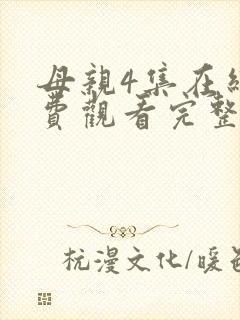 母親4集在
費觀看完整
杭漫文化/暖